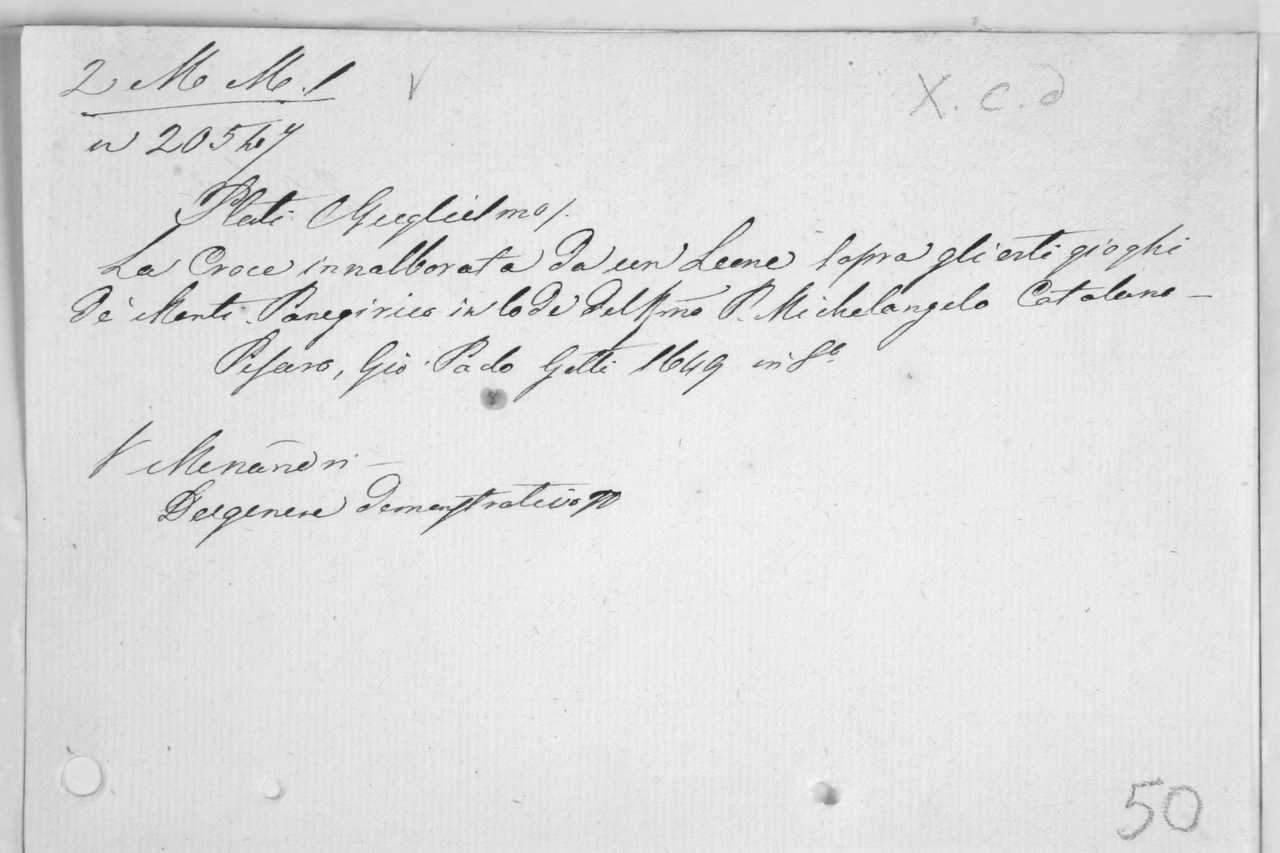 2 M M. 1
V
X. C. d
n 205
Plati Guglielmo/.
La Croce innalborata da un Leone sopra gli erti gioghi
de Monti. Panegirico in lode del Rmo P. Michelangelo Catalano –
Pesaro, Gio. Paolo Gotti 1649 in 8º
V Menandri –
De genere demonstrativo
50